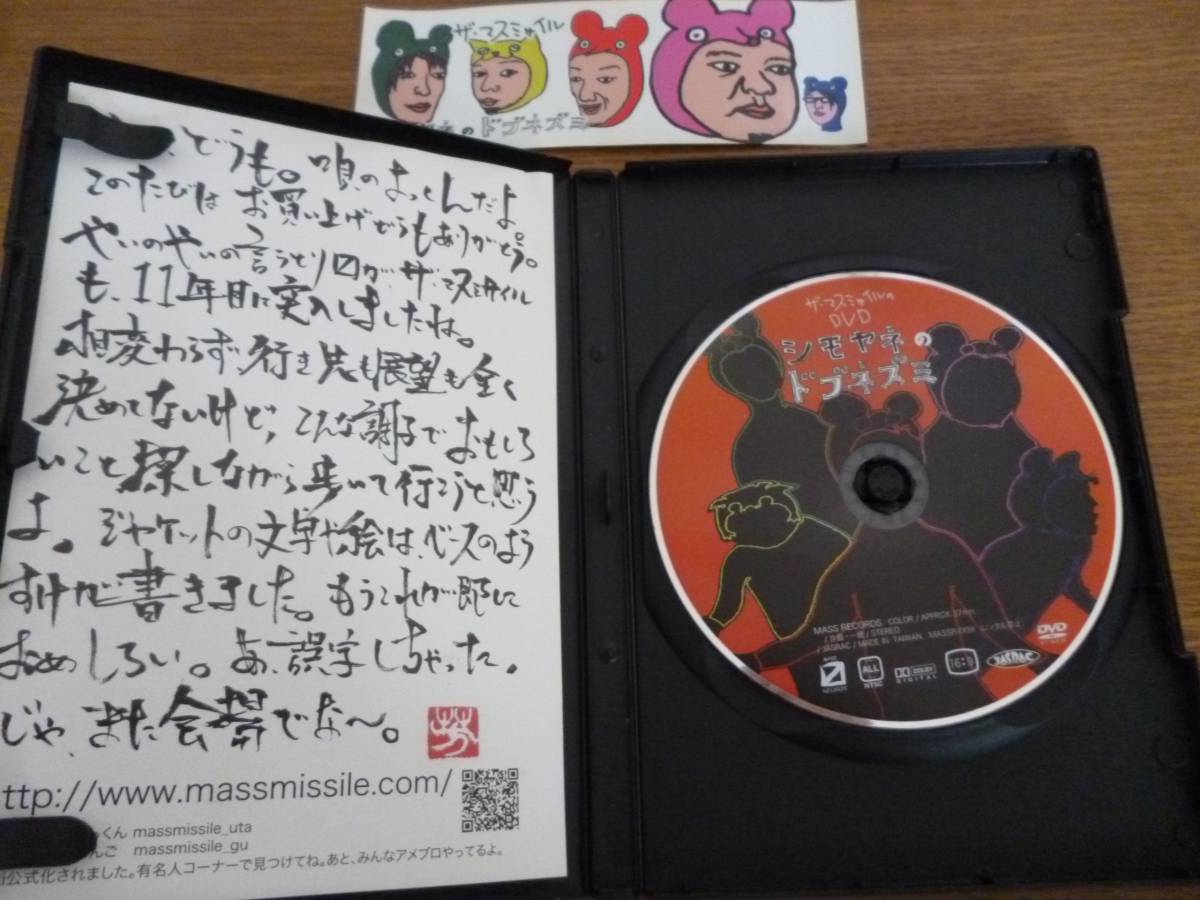 ザ・マスミサイル
ドブネズミ
、どうも。唄のまっくんだよ。
このたびは お買い上げどうもありがとう。
やいのやいの言うとり
ザ・マスミサイル
も、11年目に突入しましたね。
相変わらず行き先も展望も全く
決めてないけど、こんな調子でおもしろ
いこと探しながら歩いて行こうと思う
よ。ジャケットの文字や絵は、ベースのよう
すけが書きました。もうこれが即に
おめしろい。あ、誤字しちゃった。
じゃ、また会場でな〜。
ttp://www.massmissile.com/
くん massmissile_uta
んご massmissile_gu
公式化されました。有名人コーナーで見つけてね。あと、みんなアメブロやってるよ。
ザ・マスミサイルの
DVD
シモヤネの
ドブネズミ
MASS RECORDS COLOR / APPROX
STEREO
/ JASRAC / MADE IN TAIWAN
ALL
NTSC
DOLBY
DIGITAL
16:9
JASRAC
DVD